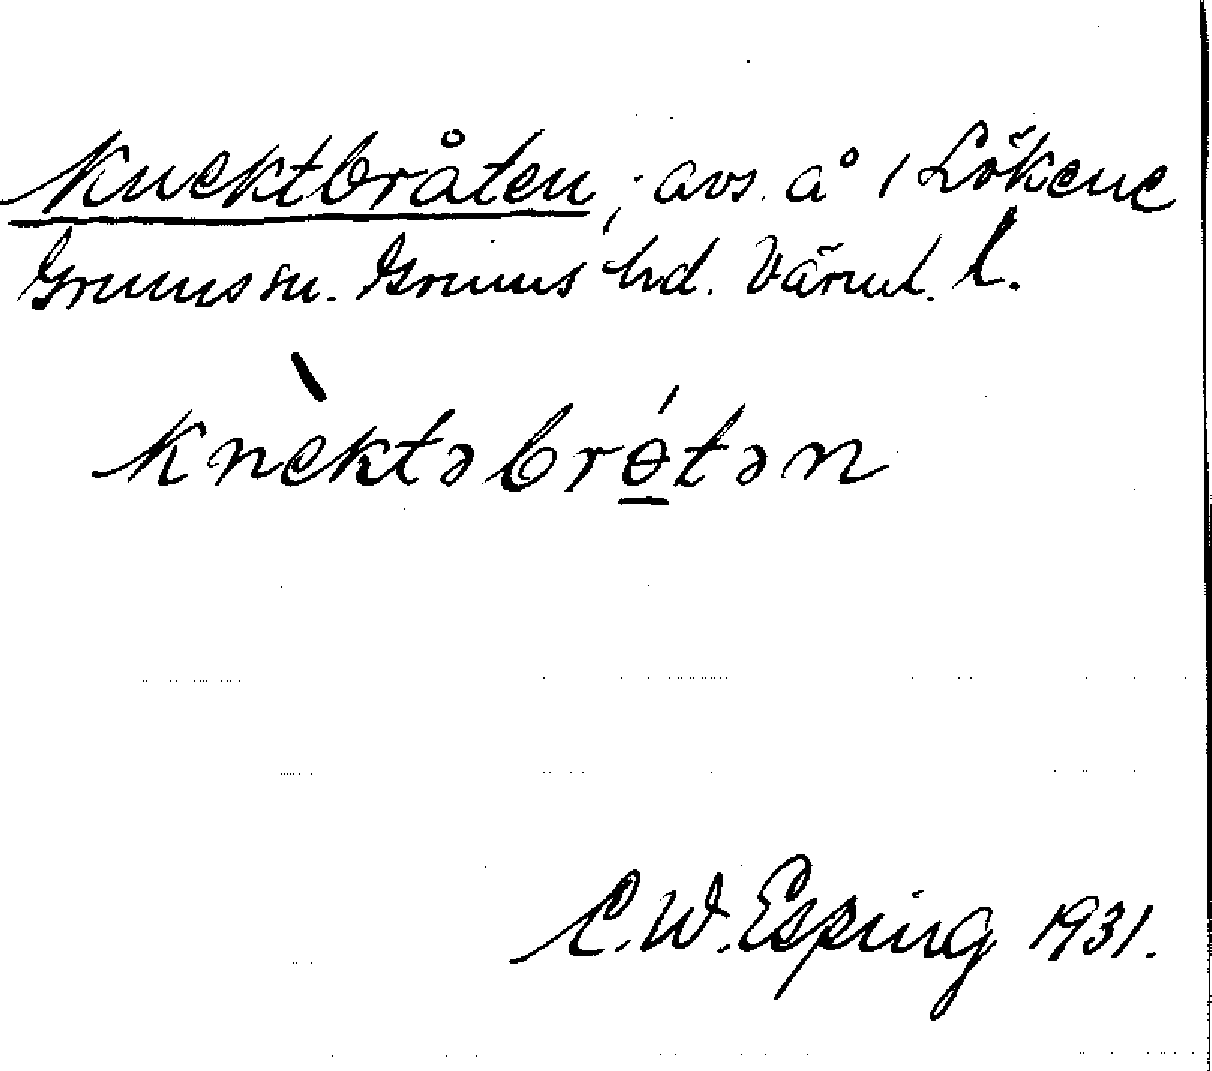 Knektbråten, avs. å 1 Lökene
Grums sn. Grums hd. Värml. l.
knὲktəbrɵ́tən
C.W. Esping 1931.